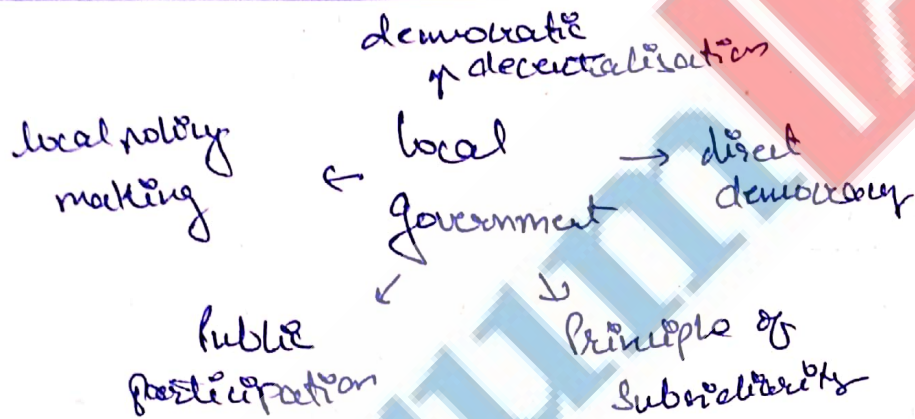 democratic
decentralisation
local policy
making
local
government
direct
democracy
Public
participation
Principle of
Subsidiarity